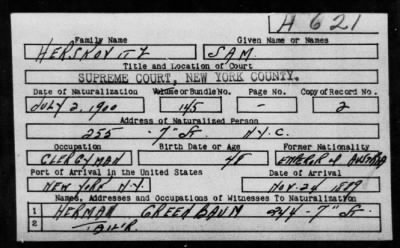 H 621
Family Name Given Name or Names
HERSKOVITZ SAM.
Title and Location of Court
SUPREME COURT, NEW YORK COUNTY.
Date of Naturalization Volume or Bundle No. Page No. Copy of Record No.
JULY 2, 1900 115 - 2
Address of Naturalized Person
255 - 7" St. N.Y.C.
Occupation Birth Date or Age Former Nationality
CLERGYMAN 48 EMPEROR of AUSTRIA
Port of Arrival in the United States Date of Arrival
NEW YORK N.Y. NOV. 24 1889
Names, Addresses and Occupations of Witnesses To Naturalization
1 HERMAN GREENBAUM 244 - 7" St.
2